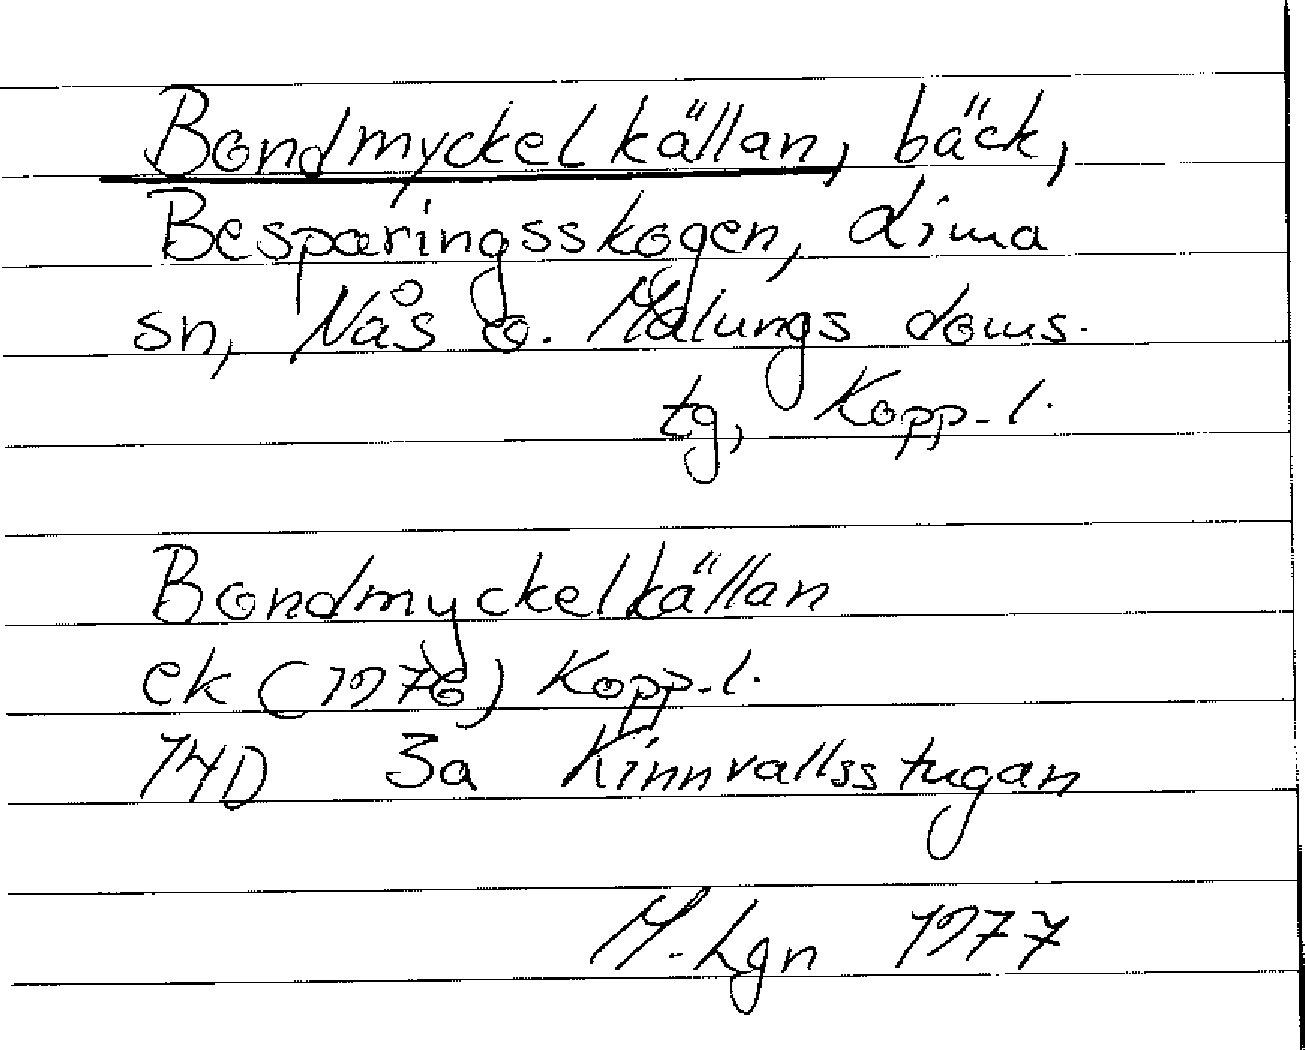 Bondmyckelkällan, bäck,
Besparingsskogen, Lima
sn, Nås o. Malungs doms.
tg, Kopp. l.
Bondmyckelkällan
ek (1976) Kopp. l.
14D 3a Kinnvallsstugan
M. Lgn 1977